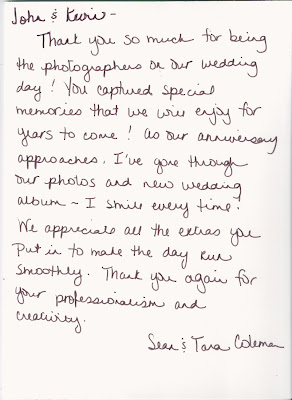 John & Kevin -
Thank you so much for being
the photographers on our wedding
day! You captured special
memories that we will enjoy for
years to come! As our anniversary
approaches, I've gone through
our photos and new wedding
album ~ I smile every time!
We appreciate all the extras you
put in to make the day run
smoothly. Thank you again for
your professionalism and
creativity.
Sean & Tara Coleman